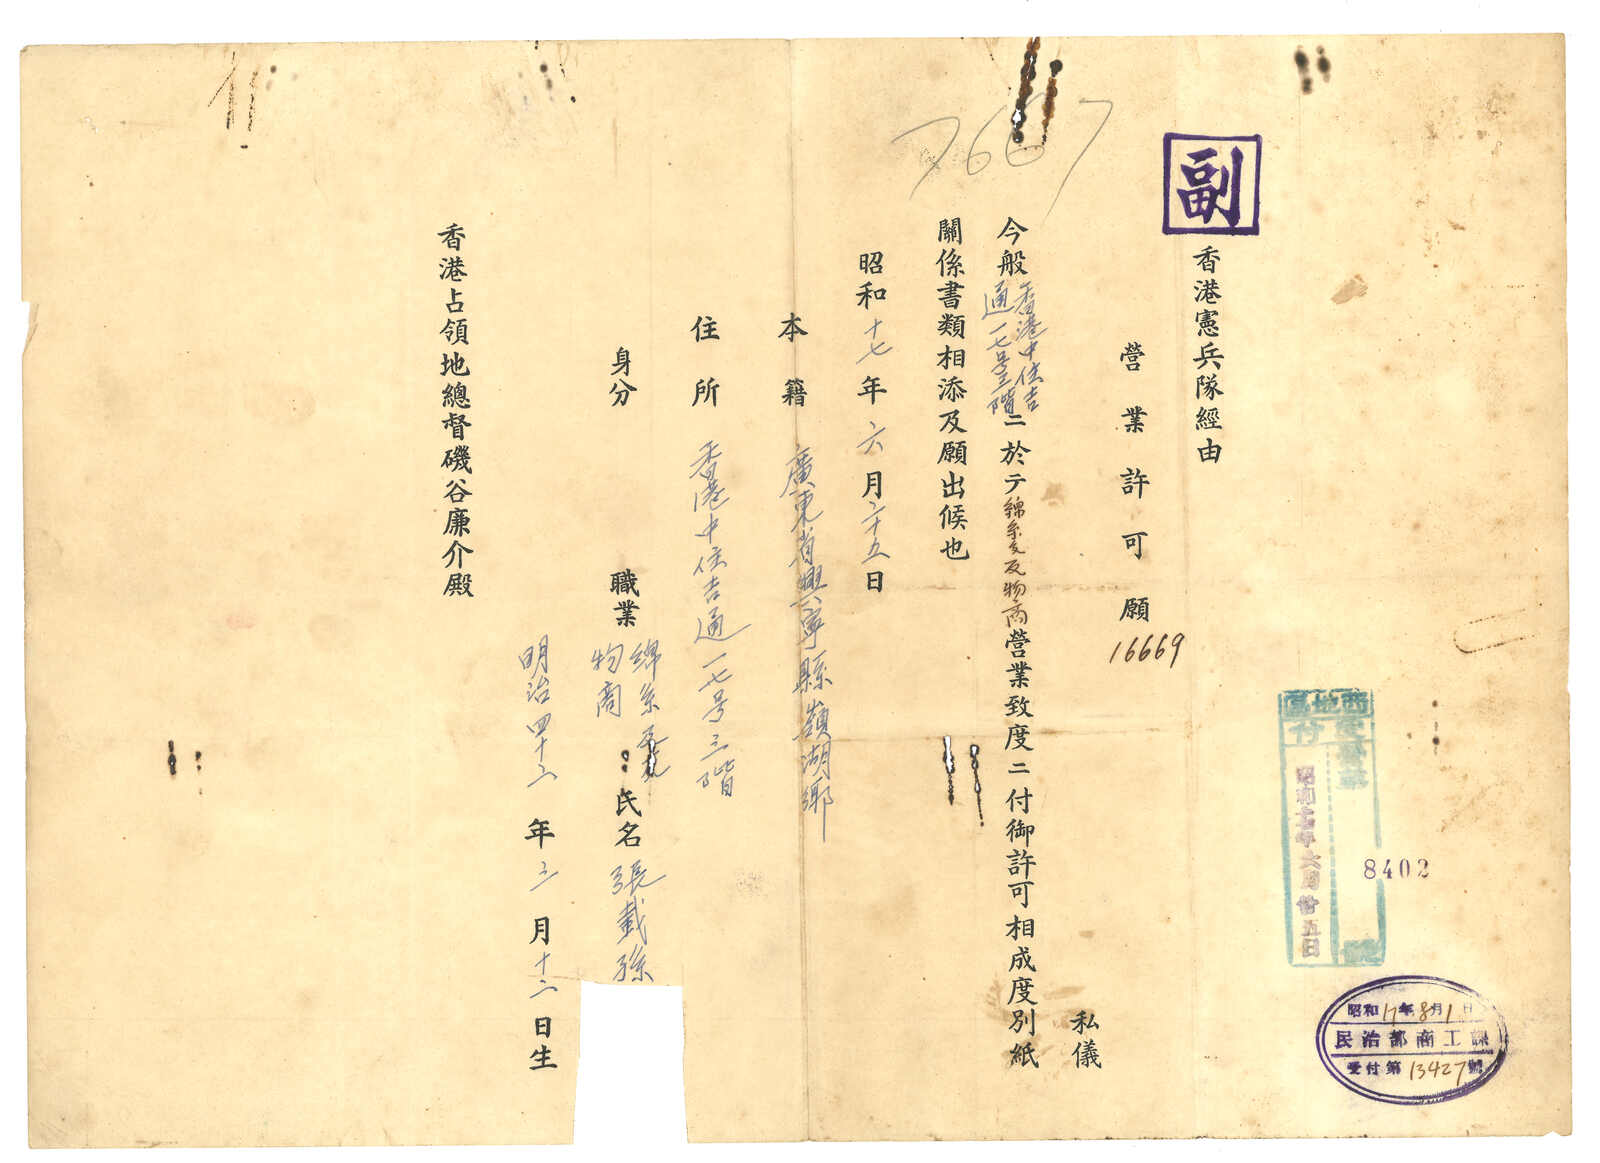 副
香港憲兵隊經由
營業許可願
16669
私儀
今般香港中住吉通一七号三階ニ於テ綿糸反物商營業致度ニ付御許可相成度別紙
關係書類相添及願出候也
昭和十七年六月二十五日
本籍 廣東省興寧縣嶺湖鄉
住所 香港中住吉通一七号三階
身分 職業 綿糸 物商 氏名 張載孫
明治四十二年三月十二日生
香港占領地總督磯谷廉介殿
7667
西地區
昭和十七年六月廿五日
8402
昭和17年8月1日
民治部商工課
受付第13427號